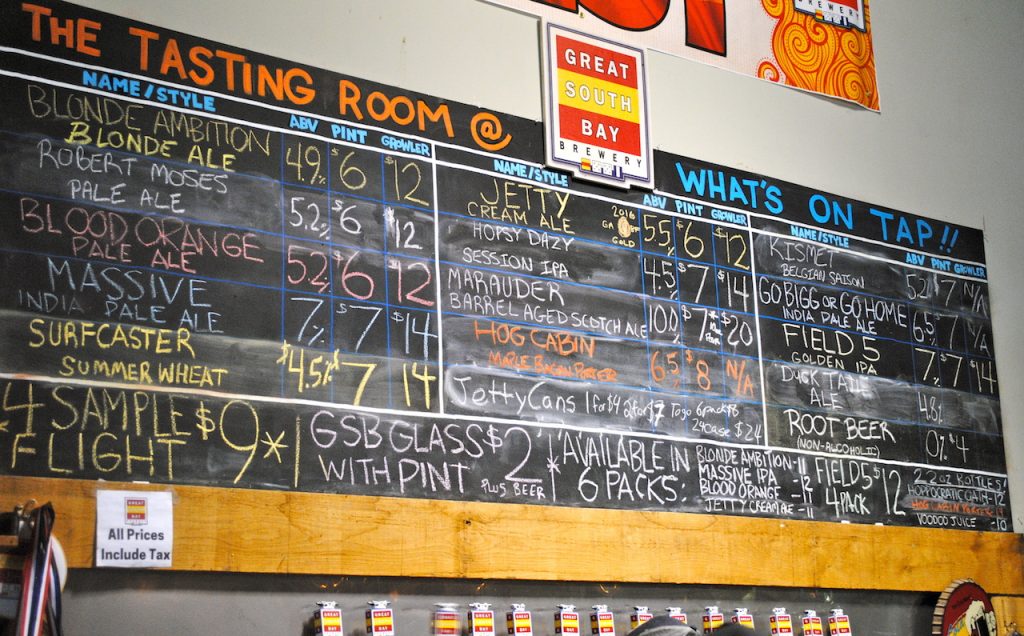 THE TASTING ROOM @
GREAT
SOUTH
BAY
BREWERY
WHAT'S ON TAP!!
NAME/STYLE ABV PINT GROWLER
BLONDE AMBITION
BLONDE ALE 4.9% $6 $12
ROBERT MOSES
PALE ALE 5.2% $6 $12
BLOOD ORANGE
PALE ALE 5.2% $6 $12
MASSIVE
INDIA PALE ALE 7% $7 $14
SURFCASTER
SUMMER WHEAT $4.5% $7 14
NAME/STYLE ABV PINT GROWLER
JETTY
CREAM ALE 2016 GOLD 5.5% $6 $12
HOPSY DAZY
SESSION IPA 4.5% $7 $14
MARAUDER
BARREL AGED SCOTCH ALE 10.0% $7* $20
HOG CABIN
MAPLE BACON PORTER 6.5% $8 N/A
Jetty Cans 1 for $4 2 for $7 To go 6pack $8
24 case $24
NAME/STYLE ABV PINT GROWLER
KISMET
BELGIAN SAISON 5.2 $7 N/A
GO BIGG OR GO HOME
INDIA PALE ALE 6.5% $7 N/A
FIELD 5
GOLDEN IPA 7% $7 $14
DUCK TAIL
ALE 4.8%
ROOT BEER
(NON-ALCOHOLIC) 0% $4
4 SAMPLE $9*
FLIGHT
GSB GLASS $2*
WITH PINT PLUS BEER
*AVAILABLE IN
6 PACKS:
BLONDE AMBITION -11
MASSIVE IPA -12
BLOOD ORANGE -12
JETTY CREAM ALE -11
FIELD 5 $12
4PACK
22oz BOTTLES
HOPPOCRATIC OATH -12
HOG CABIN PORTER
VOODOO JUICE -10
GREAT
SOUTH
BAY
All Prices
Include Tax